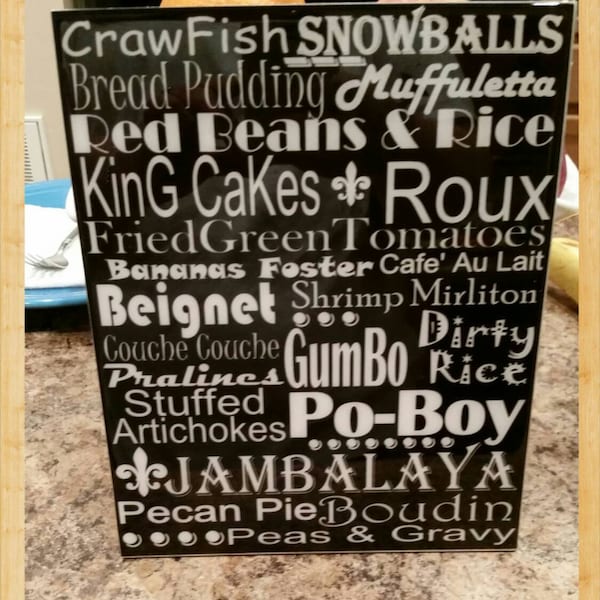 CrawFish SNOWBALLS
Bread Pudding Muffuletta
Red Beans & Rice
KinG CaKes Roux
FriedGreenTomatoes
Bananas Foster Cafe' Au Lait
Beignet Shrimp Mirliton
Couche Couche GumBo Dirty Rice
Pralines
Stuffed Artichokes Po-Boy
JAMBALAYA
Pecan Pie Boudin
Peas & Gravy